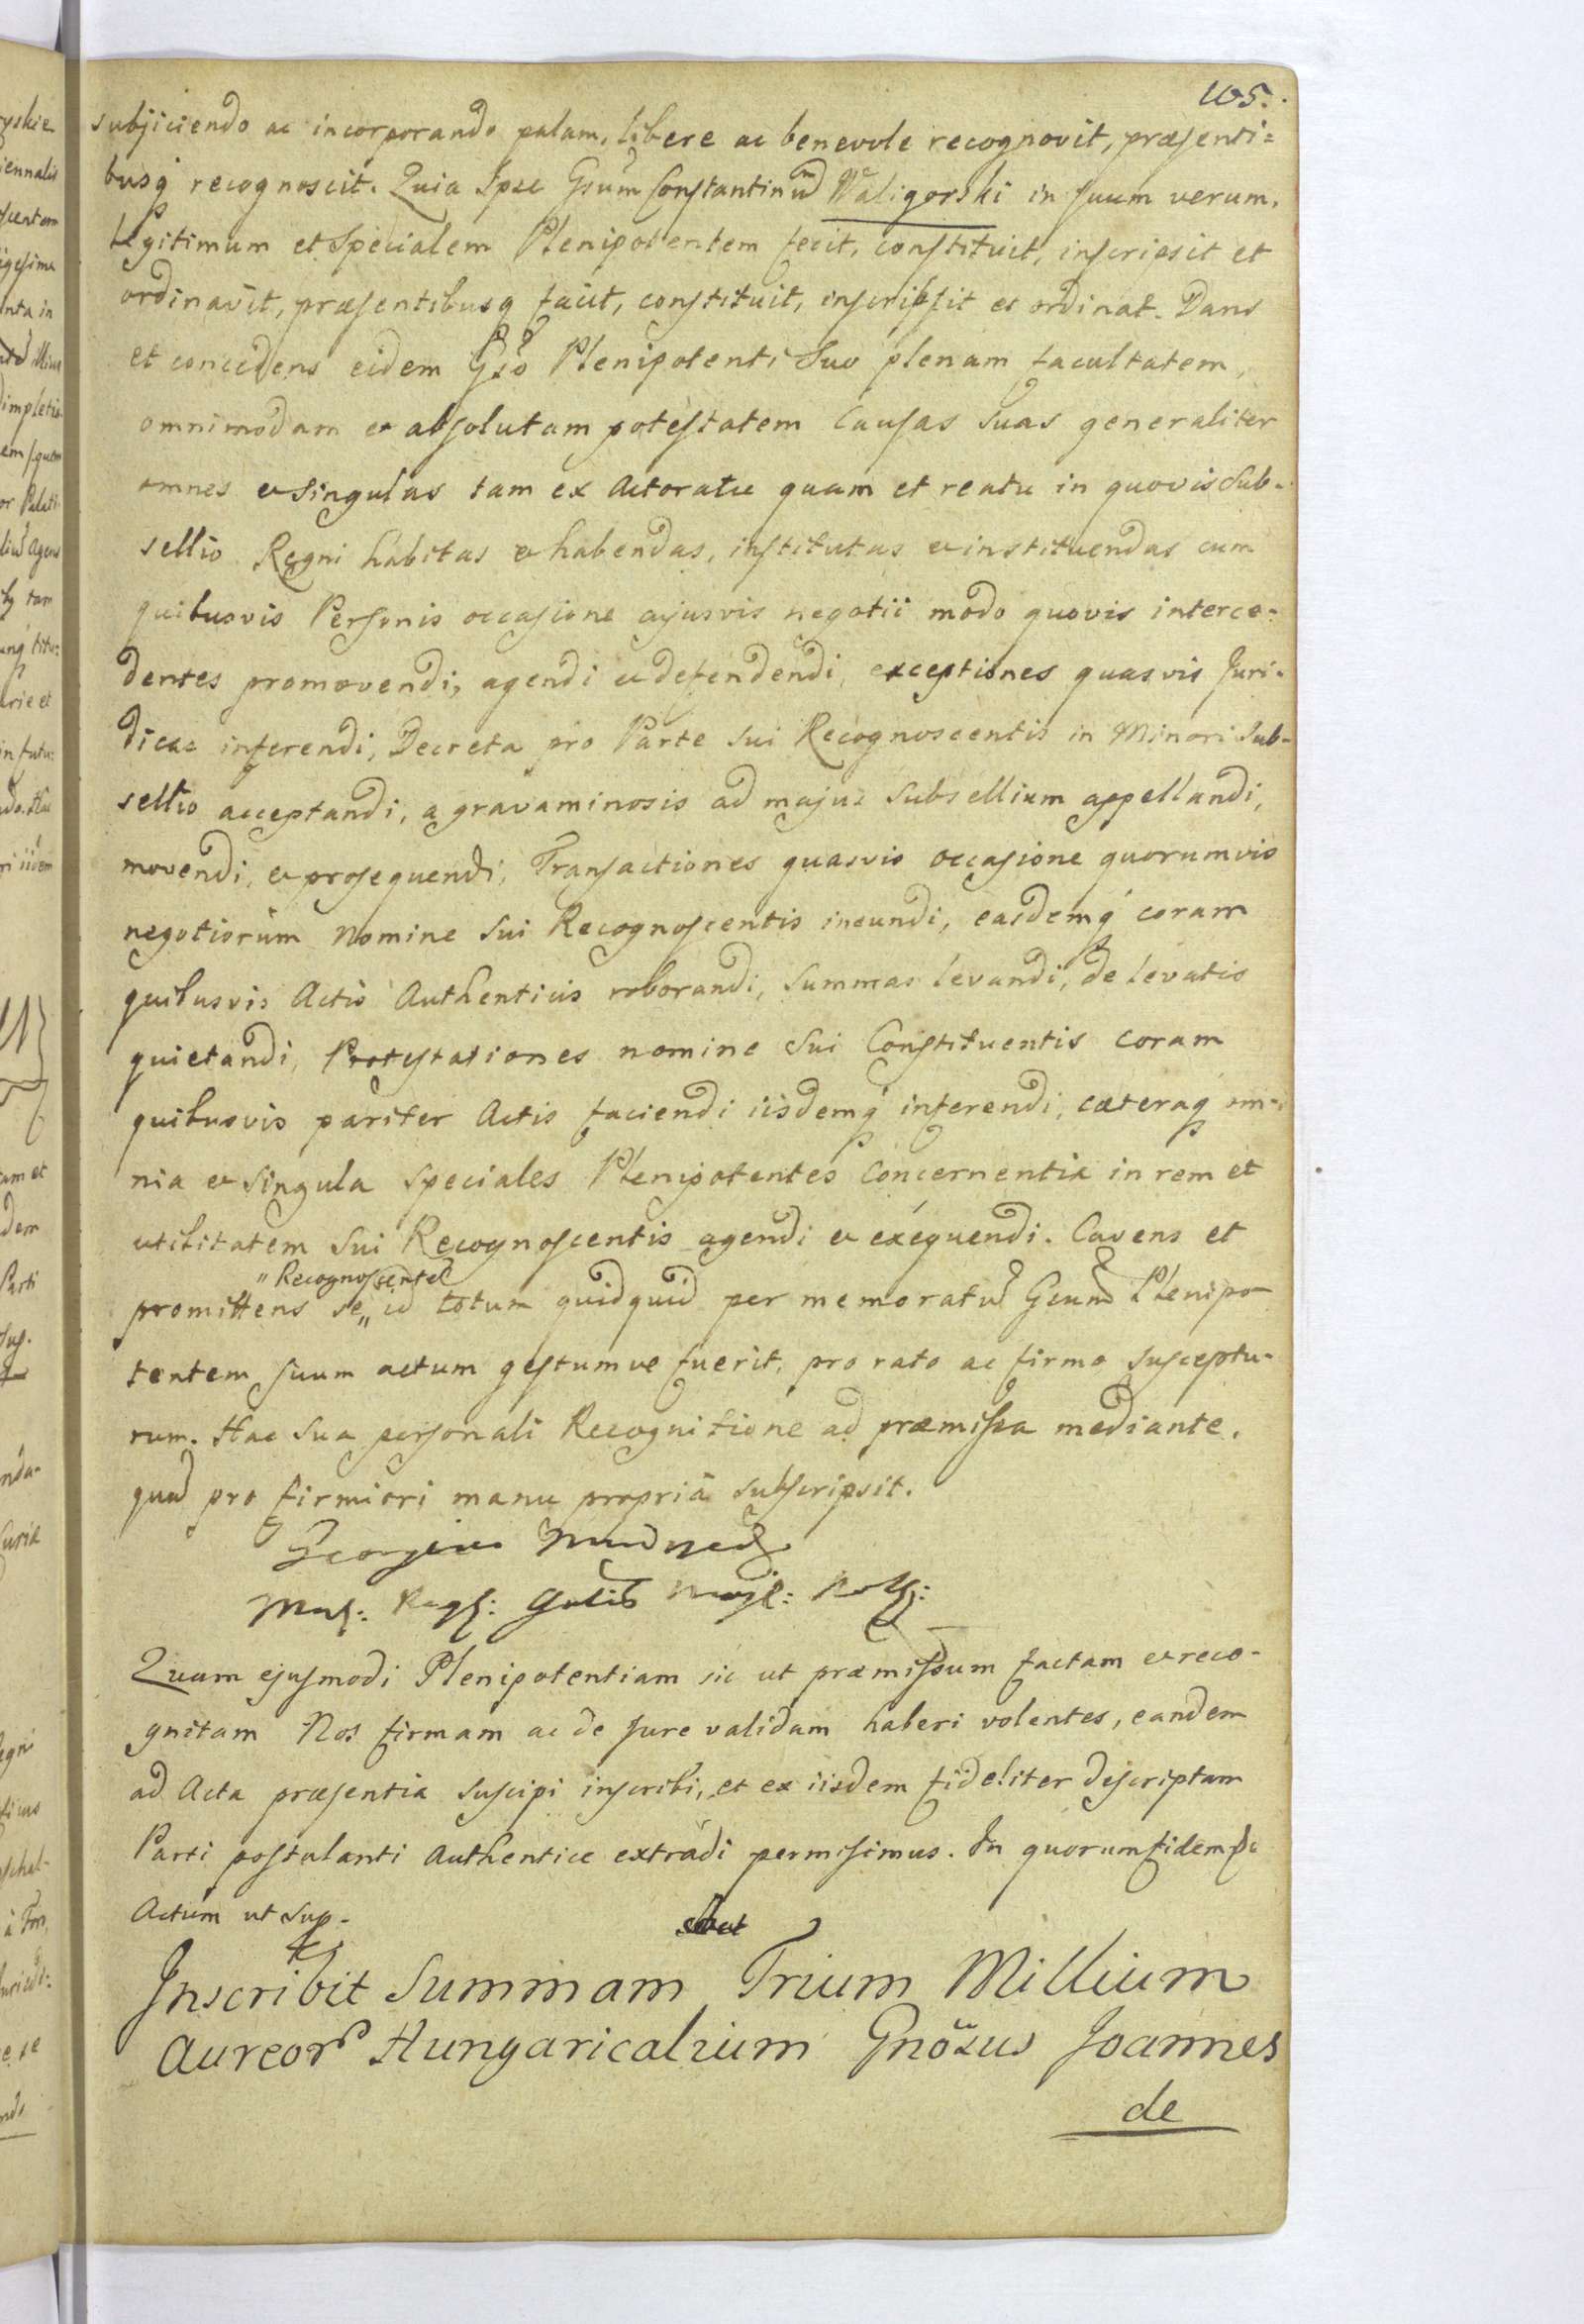 105.
subjiciendo ac incorporando palam, libere ac benevole recognovit, præsenti=
busq recognoscit. Quia Ipse Gsum Constantinum Waligorski in suum verum,
Legitimum et Specialem Plenipotentem fecit, constituit, inscripsit et
ordinavit, præsentibusq facit, constituit, inscribsit et ordinat. Dans
et concedens eidem Gso Plenipotenti Suo plenam facultatem,
omnimodam et absolutam potestatem Causas suas generaliter
omnes et singulas tam ex Actoratu quam et reatu in quovis Sub-
sellio Regni habitas et habendas, institutas et instituendas cum
quibusvis Personis occasione cujusvis negotii modo quovis interce-
dentes promovendi, agendi et defendendi, exceptiones quasvis Juri-
dicas inferendi, Decreta pro Parte sui Recognoscentis in Minori Sub-
sellio acceptandi, a gravaminosis ad majus Subsellium appellandi,
movendi, et prosequendi, Transactiones quasvis occasione quorumvis
negotiorum nomine sui Recognoscentis ineundi, easdemq coram
quibusvis Actis Authenticis roborandi, Summas levandi, de levatis
quietandi, Protestationes nomine sui Constituentis coram
quibusvis pariter Actis faciendi iisdemq inferendi, cæteraq om-
nia et singula speciales Plenipotentes concernentia in rem et
utilitatem sui Recognoscentis agendi et exequendi. Cavens et
" Recognoscentem
promittens se " id totum quidquid per memoratum Gsum Plenipo-
tentem suum actum gestumve fuerit, pro rato ac firmo susceptu-
rum. Hac sua personali Recognitione ad præmissa mediante,
quod pro firmiori manu propria subscripsit.
Georgius
Quam ejusmodi Plenipotentiam sic ut præmissum factam et reco-
gnitam Nos firmam ac de Jure validam haberi volentes, eandem
ad Acta præsentia suscipi inscribi, et ex iisdem fideliter descriptam
Parti postulanti Authentice extradi permisimus. In quorum fidem
Actum ut sup.
Inscribit Summam Trium Millium
Aureor Hungaricalium Gnosus Joannes
de